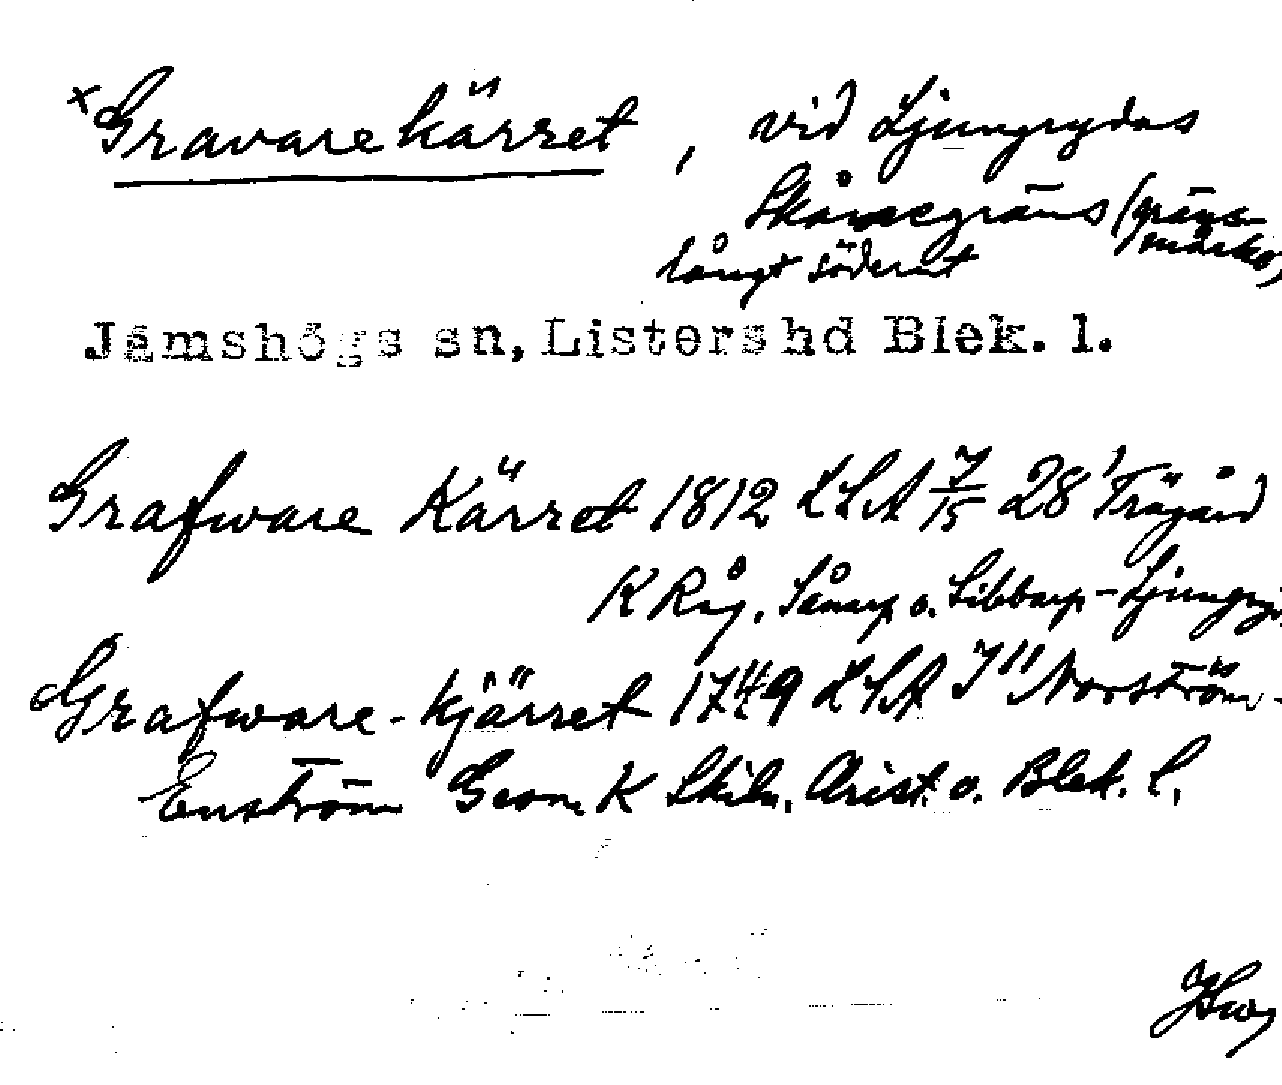 ×Gravarekärret, vid Ljungrydas
Skånegräns (gräns-
märke)
långt söderut
Jämshögs sn, Listers hd Blek. l.
Grafware Kärret 1812 LSA 7/15 28' Trägård
K Råg. Sånarp o. Sibbarp-Ljungry
Grafware-kjärret 1749 LSA Norström-
Enström Geom. K Skiln. Krist. o. Blek. l.